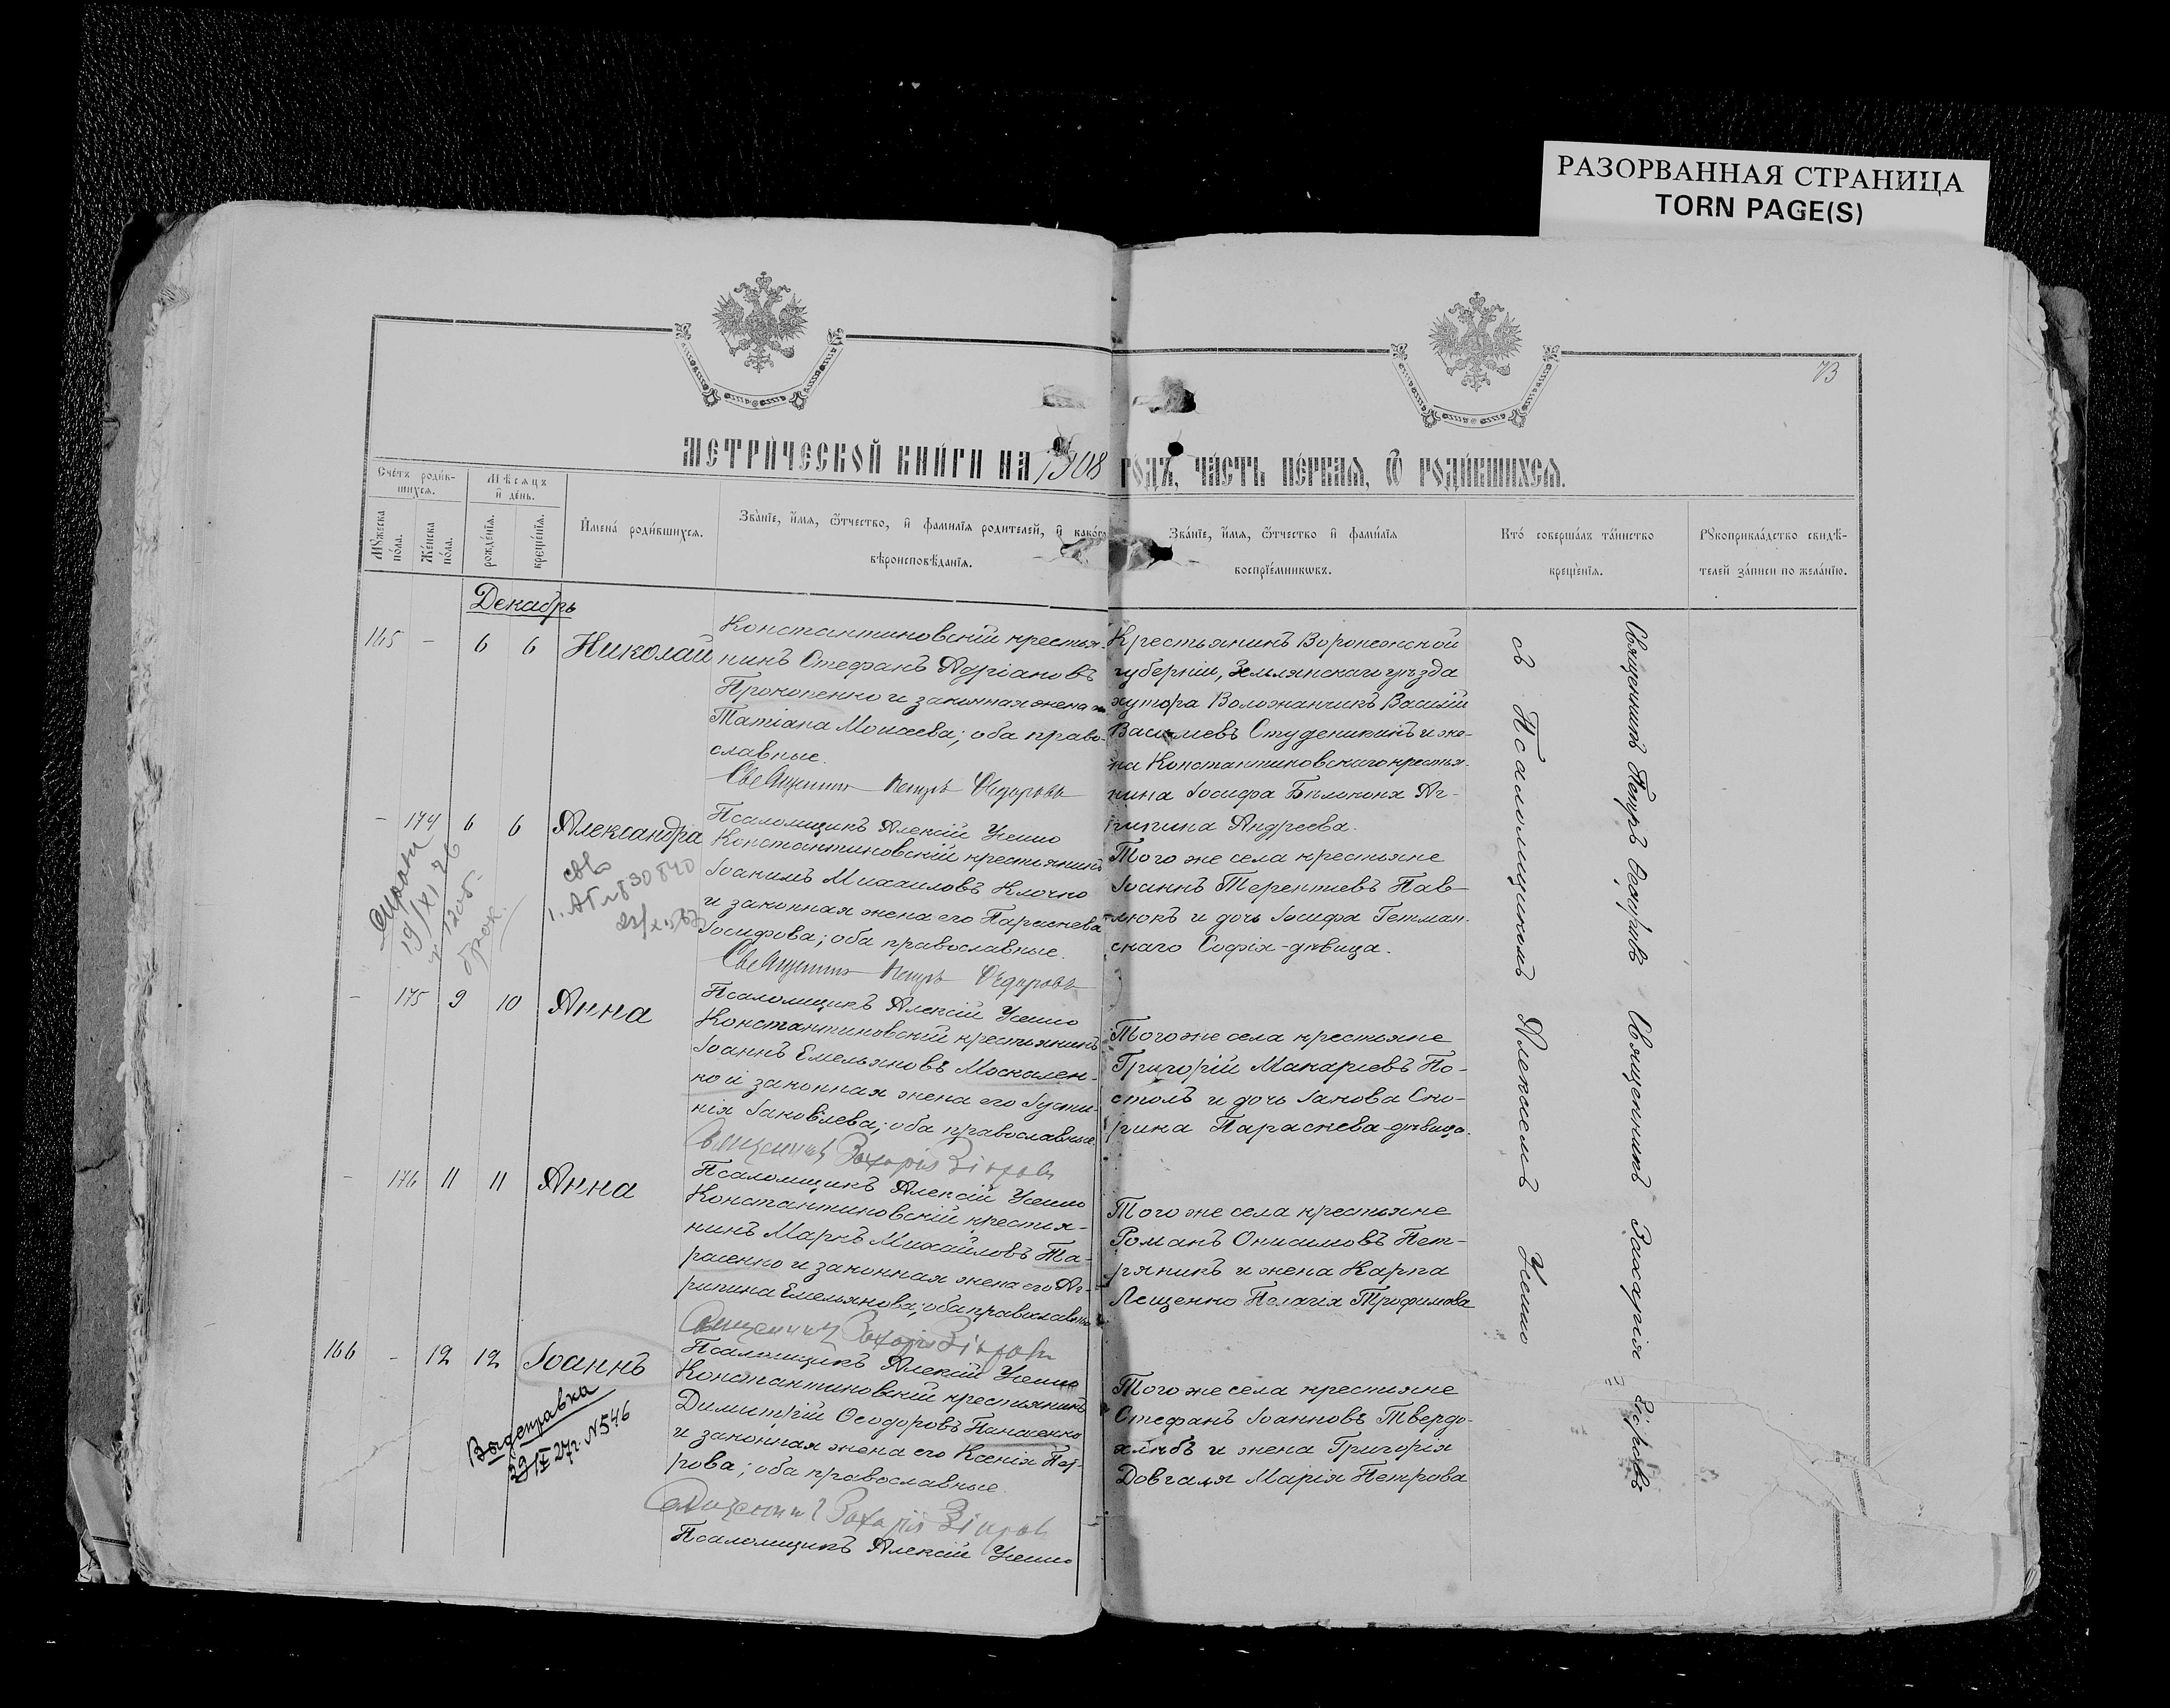 РАЗОРВАННАЯ СТРАНИЦА
TORN PAGE(S)
73
МЕТРИЧЕСКОЙ КНИГИ НА 1908 ГОДЪ, ЧАСТЬ ПЕРВАЯ, Ѡ РОДИВШИХСЯ.
Счетъ родив-
шихся.
Мѣсяцъ
и день.
Мужеска
пола.
Женска
пола.
рожденія.
крещенія.
Имена родившихся.
Званіе, имя, ѿчество, и фамилія родителей, и какого
вѣроисповѣданія.
Званіе, имя, ѿчество и фамилія
воспріемниковъ.
Кто совершалъ таинство
крещенія.
Рукоприкладство свидѣ-
телей записи по желанію.
Декабрь
165 - 6 6 Николай
Константиновскій крестья-
нинъ Стефанъ Адріановъ
Прокопенко и законная жена
Татіана Моисеева; оба право-
славные.
Священникъ Петръ Федоровъ
Псаломщикъ Алексій Усенко
Крестьянинъ Воронежской
губерніи, Землянскаго уѣзда
хутора Воложанчикъ Василій
Васильевъ Студеникинъ и же-
на Константиновскаго крестья-
нина Іосифа Бѣлоконя Аг-
рипина Андреева.
- 174 6 6 Александра
Константиновскій крестьянинъ
Іоакимъ Михаиловъ Клочко
и законная жена его Параскева
Іосифова; оба православные.
Священникъ Петръ Федоровъ
Псаломщикъ Алексій Усенко
Того же села крестьяне
Іоаннъ Терентіевъ Пав-
люкъ и дочь Іосифа Гетман-
скаго Софія-дѣвица.
19/XI 26
- 175 9 10 Анна
Константиновскій крестьянинъ
Іоаннъ Емельяновъ Москален-
ко и законная жена его Іусти-
нія Іаковлева; оба православные.
Священникъ Захарія Зіоровъ
Псаломщикъ Алексій Усенко
Того же села крестьяне
Григорій Макаріевъ По-
столъ и дочь Іакова Ско-
рика Параскева-дѣвица.
- 176 11 11 Анна
Константиновскій крестья-
нинъ Маркъ Михайловъ Та-
расенко и законная жена его Аг-
рипина Емельянова; оба православные
Священникъ Захарія Зіоровъ
Псаломщикъ Алексій Усенко
Того же села крестьяне
Романъ Онисимовъ Пет-
ряникъ и жена Карпа
Лещенко Пелагія Трофимова
166 - 12 12 Іоаннъ
Константиновскій крестьянинъ
Димитрій Ѳеодоровъ Панасенко
и законная жена его Ксенія Пет-
рова; оба православные.
Священникъ Захарія Зіоровъ
Псаломщикъ Алексій Усенко
Того же села крестьяне
Стефанъ Іоанновъ Твердо-
хлѣбъ и жена Григорія
Довгаля Марія Петрова
Выд справка
29/IX 27г. N546
Священникъ Петръ Ѳедоровъ Священникъ Захарія Зіоровъ
съ Псаломщикомъ Алексѣемъ Усенко